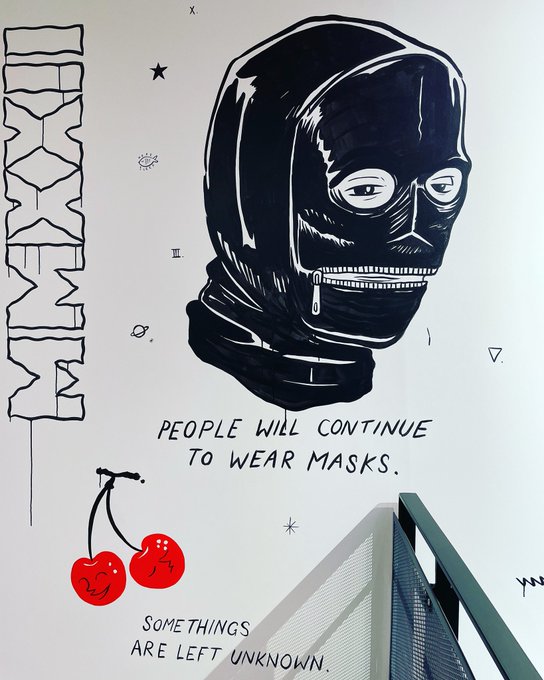 X.
MMXXII
III.
PEOPLE WILL CONTINUE
TO WEAR MASKS.
SOMETHINGS
ARE LEFT UNKNOWN.